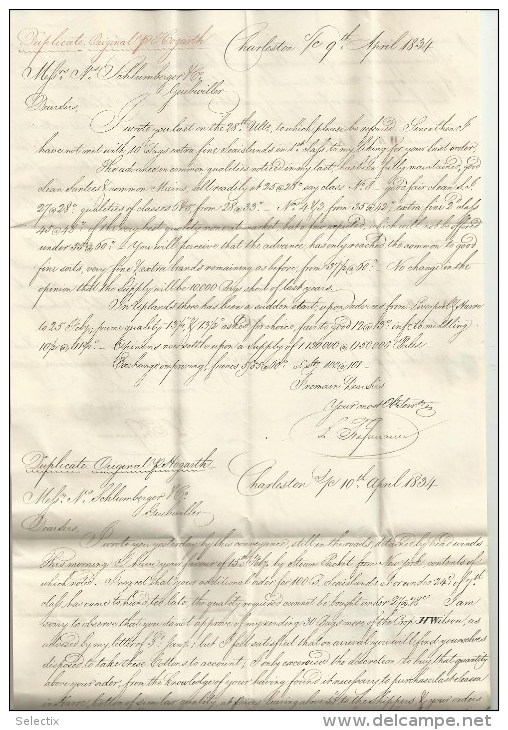 © delcampe.net
Duplicate Original p Hogarth
Charleston S/C 9th April 1834
Messrs. Ns. Schlumberger & Co.
Guebwiller
Dear Sirs,
I wrote you last on the 28th Ulto. to which please be referred. Since then I
have not met with 10 Bags extra fine Sea islands on 1st Class, to my liking for your last order.
The advance on common qualities noticed in my last, has been fully maintained, good
clean Santees & common Mains, sell readily at 25 @ 28c
27 @ 28c qualities of classes 6 & 5, from 28 @ 33c No. 4 & 3, from 35 @ 42c extra fine 2d class
45 @ 48c of the very best quality
under 55 @ 60c. You will perceive that the advance, has only reached the common to good
fine sorts, very fine & extra brands remaining as before, from 37½ @ 60c. No change in the
opinion that the supply will be 10,000 Bales short of last years.
In Uplands there has been a sudden start, upon advices from Liverpool & Havre
to 25 Feby., prime quality 13¼ & 13½ asked for choice, fair to good 12 @ 13c infr. to middling
10½ @ 11¾c. Opinions now settle upon a supply of 1.130.000 @ 1.150.000 Bales
Exchange improving, francs
I remain Dear Sirs
Your most Obt. Servt.
Duplicate Original p Hogarth
Charleston S/C 10th April 1834.
Messrs. Ns. Schlumberger & Co.
Guebwiller
Dear Sirs,
I wrote you yesterday by this conveyance, still in the roads, detained by head winds
This morning I have your favour of 15th Feby. by Steam Packet from New York, contents of
which noted. I regret that your additional order for 100 B. Sea islands
class, has come to hand too late, the quality required cannot be bought under 27 @ 28c I am
sorry to observe that you do not approve of my sending 30 Bags more of the Crop H Wilson, as
advised by my letter of 3d Jany.; but I feel satisfied that on arrival you will find yourselves
disposed to take these Cottons to account, I only exercised the discretion to buy that quantity
above your order, from the knowledge of your having found it necessary to purchase last season
in Havre, cotton of similar quality at prices leaving above to the Shippers & your orders
Selectix
www.delcampe.net